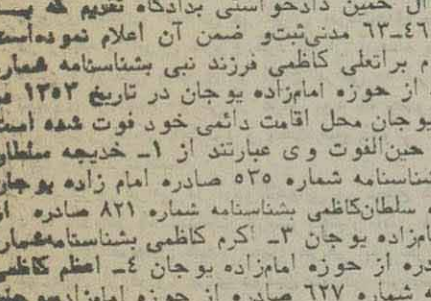 ال حمین دادخواستی بدادگاه تقدیم که
۴۶ـ۶۳ مدنی‌ثبت‌و ضمن آن اعلام نموده‌است
م براتعلی کاظمی فرزند نبی بشناسنامه شماره
از حوزه امامزاده یوجان در تاریخ ۱۳۵۳
یوجان محل اقامت دائمی خود فوت شده است
حین‌الفوت وی عبارتند از ۱ـ خدیجه سلطان
شناسنامه شماره ۵۳۵ صادره امام زاده یوجان
ه سلطان‌کاظمی بشناسنامه شماره ۸۲۱ صادره از
امزاده یوجان ۳ـ اکرم کاظمی بشناسنامه‌شماره
دره از حوزه امامزاده یوجان ٤ـ اعظم کاظمی
ه شماره ۶۲۷ صادره از حوزه امامزاده‌یوجان